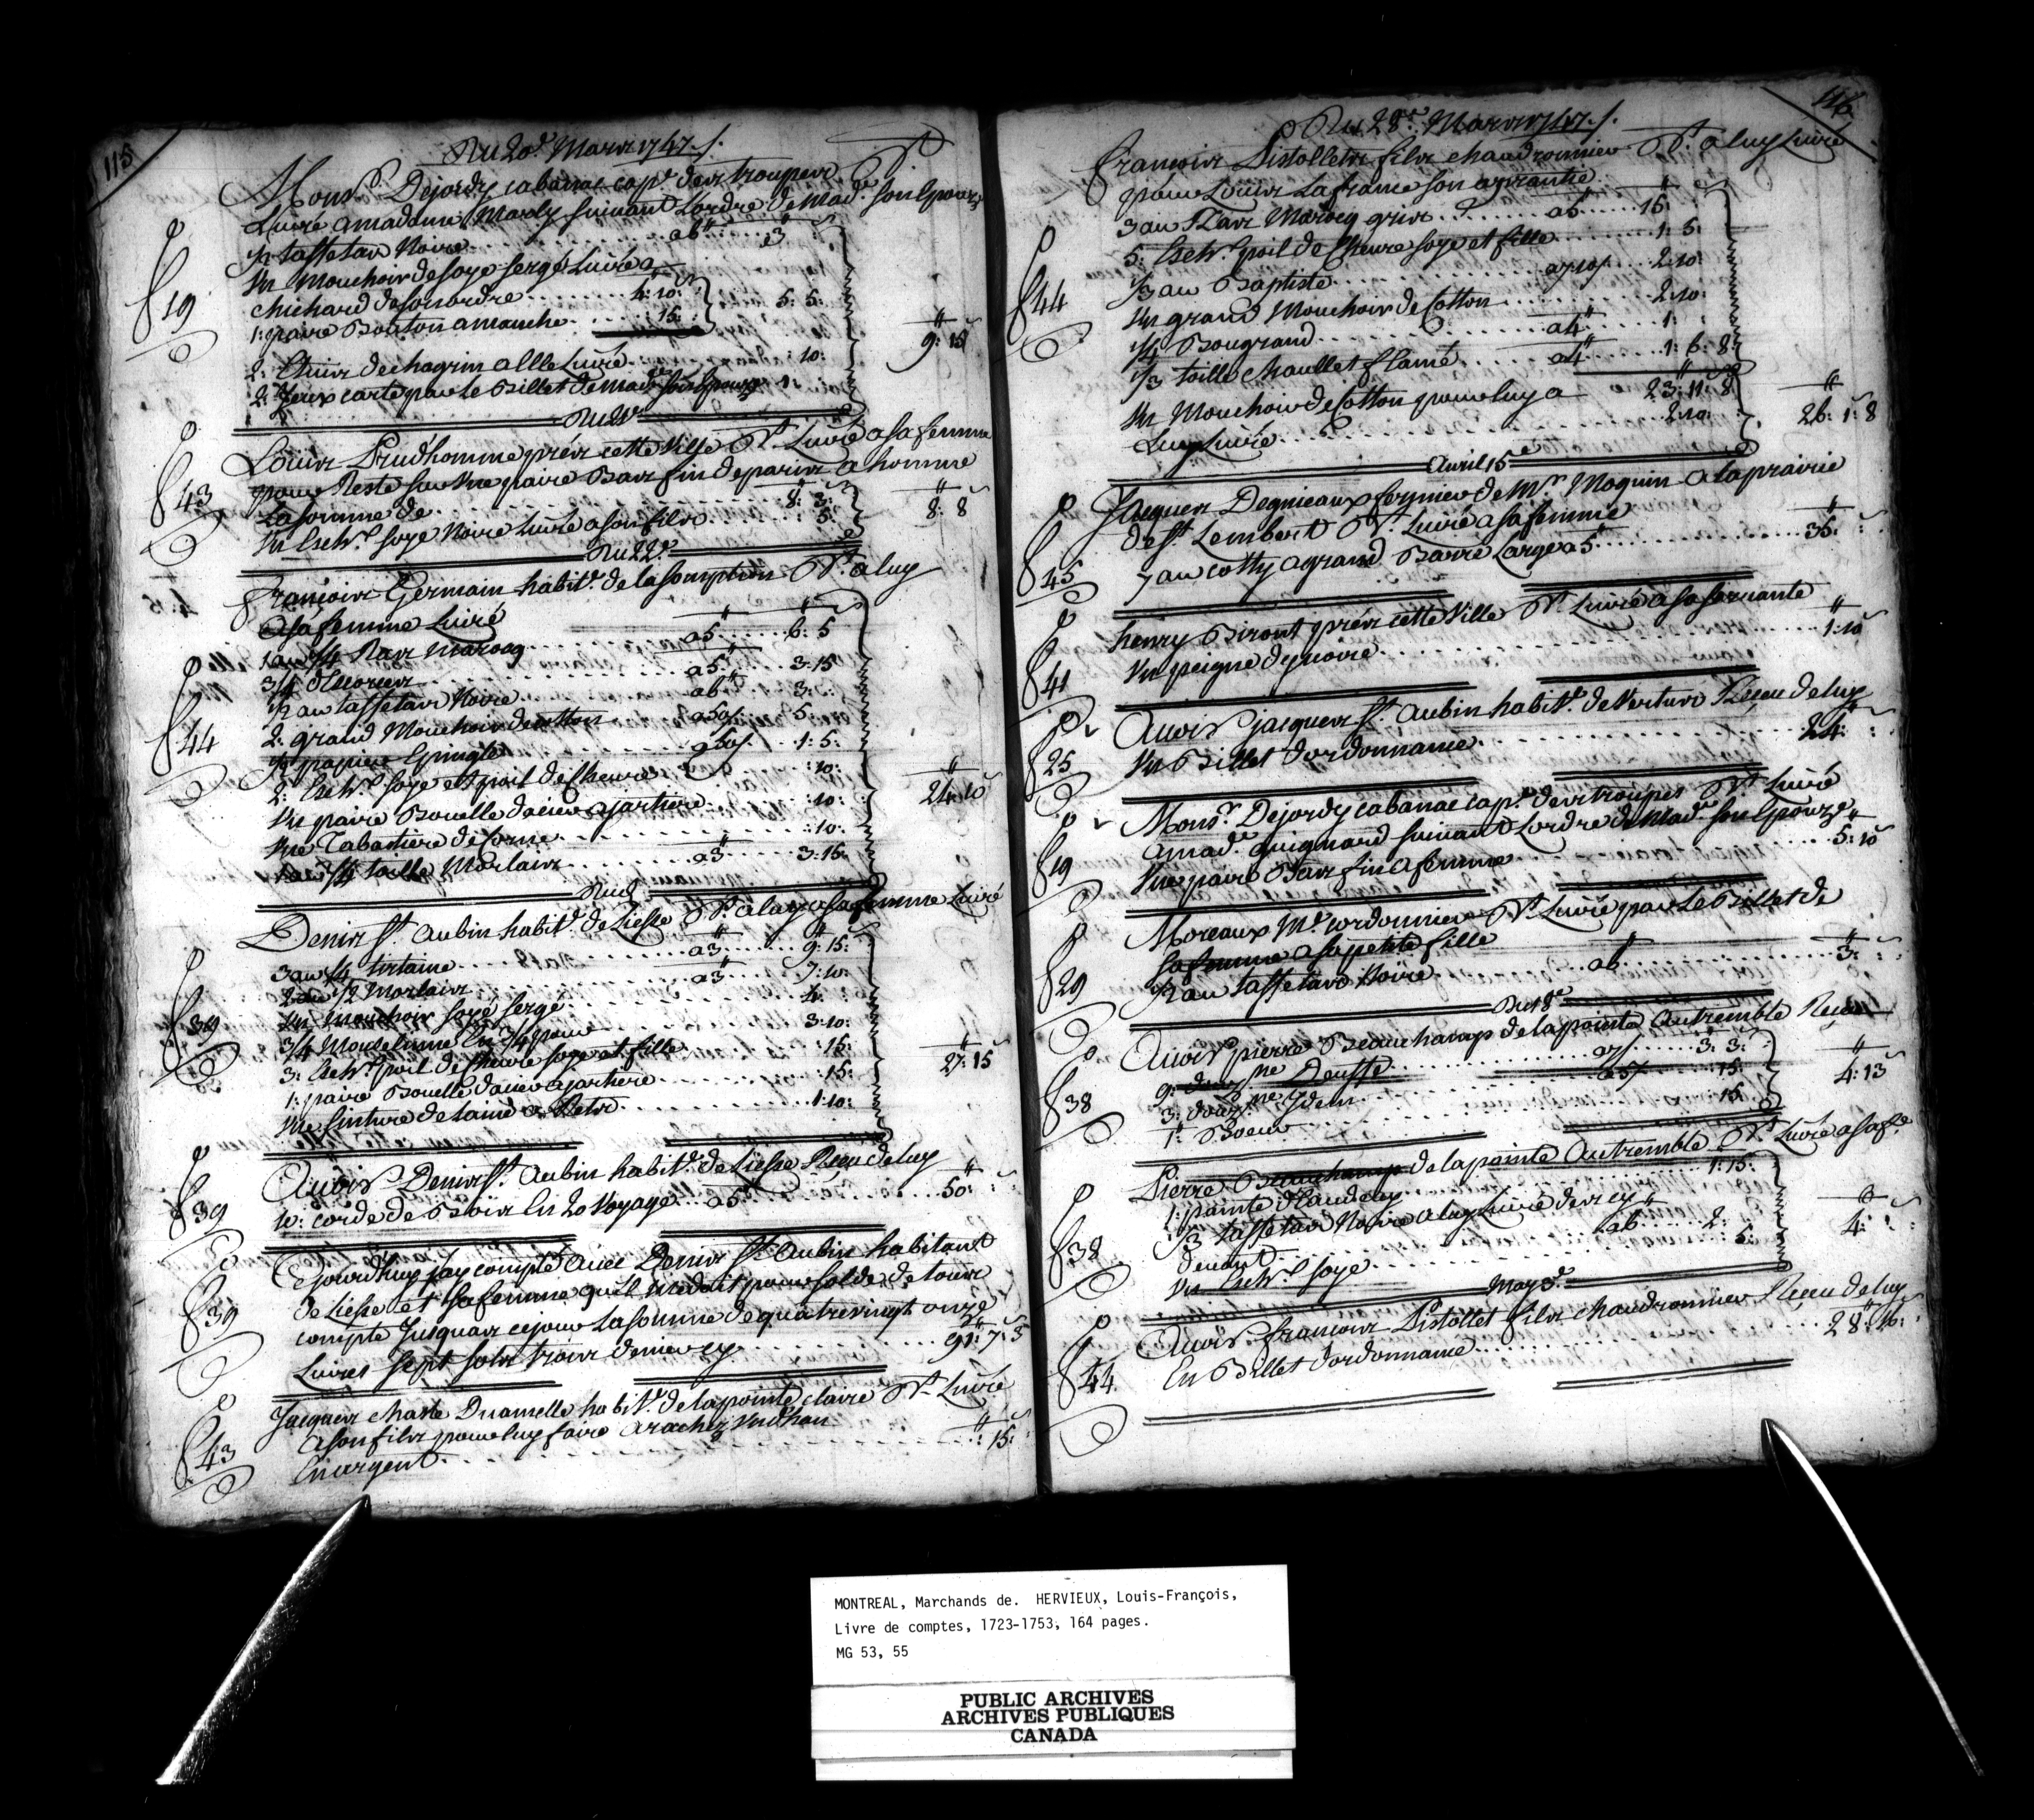 115
Du 20e Mars 1747 /.
Monsr. Dejordy cabanac capne. des troupes Dt.
Livré a madame Marly suivant Lordre de Made. son Epouze
1/2 taffetas Noire a6# 3
Un Mouchoir de soye sergé Livré a
chichard de son ordre 4: 10:
1: paire Bouton a manche 15: 5: 5:
19
9: 15
2: Cuirs de chagrin a Elle Livré 10:
2: Jeux carte par le Billet de Made son Epouze 1:
Du 21e
Louis Prudhomme près cette Ville Dt. Livré a sa femme
pour Reste sur Une paire Bas fin de paris a homme
La somme de 8: 3:
Un Echev. soye Noire Livré a son fils 5:
43
8: 8
Du 22e
François Germain habitt. de lasomption Dt. a luy
a sa femme Livré
1 au 1/4 Ras maroq a5 6: 5
3/4 a5 3: 15
1/2 au taffetas Noire a6 3:
2: grand Mouchoir de cotton a50s 5:
1/2 papier Epingle a50s 1: 5:
2: Echev. soye et poil de Chevre :10:
Un paire Boucle dacier a jartiere :10:
Une Tabatiere de Corne :10:
1 au 1/4 toille Morlaix a3 3: 15:
44
24: 10
Dud
Denis St. Aubin habitt. de Liesse Dt. a luy a sa femme Livré
3 au 1/4 tirtaine a3 9: 15:
2 au 1/2 Morlaix a3 7: 10:
Un Mouchoir soyé sergé 4:
3/4 Mouseline En 3/4 pour 3: 10:
3: Echev. poil de Chevre soye et fille :15:
1: paire Boucle dacier a jartiere :15:
Une Sinture de laine a 1: 10:
39
27: 15
Avoir Denis St. Aubin habitt. de Liesse Reçeu de luy
10: corde de Bois En 20 Voyage a5 50:
39
Cejourdhuy jay compté avec Denis St. Aubin habitant
de Liesse et sa femme quil me doit pour solde de tous
compte Jusquas cejour La somme de quatrevingt onze
Livres sept sols trois denier cy 91: 7: 3
39
Jacques chasle Duamelle habitt. de la pointe claire Dt. Livré
a son fils pour luy faire arachez Une Dan
En argent :15:
43
116
Du 28e Mars 1747 /.
françois Pistollets fils chaudronnier Dt. a luy Livré
pour Louis La france son aprantie
3 au Ras Marocq gris a5 15:
5: Echev. poil de Chevre soye et fille 1: 5:
1/3 au Baptiste a7 10s 2: 10:
Un grand Mouchoir de Cotton 2: 10:
1/4 Bougrand a4 1:
1/3 toille Chaullet flamé a4 1: 6: 8
23: 11: 8
Un Mouchoir de Cotton pour luy a
Luy Livré 2: 10:
44
26: 1: 8
Avril 15e
Jacques Degnieaux fermier de Mr. Moquin a la prairie
de St. Lembert Dt. Livré a sa femme
7 au cotty a grand Barre Large a5 35:
45
henry Biront près cette Ville Dt. Livré a sa servante
Un peigne dyvoire 1: 10
41
Avoir jacques St. Aubin habitt. de Vertus Reçeu de luy
Un Billet dordonnance 24:
25
Monsr. Dejordy cabanac capne. des troupes Dt. Livré
a made. guignard suivant Lordre de Made. son Epouze
Une paire Bas fin a femme 5: 10
19
Moreaux Me. cordonnier Dt. Livré par le Billet de
sa femme a sa petite fille
1/2 au taffetas Noire a6 3:
29
Du 18e
Avoir pierre Beauchamp de la pointe Autremble Reçeu
9: douzne Deuffe a7s 3: 3:
3: douzne ydem a5s 15:
1: Boeur 15:
38
4: 13
Pierre Beauchamp de la pointe Autremble Dt. Livré a sa fe.
1: pointe 1: 15:
1/3 taffetas Noire a luy Livré devrey
devant a6 2:
Un Echev. soye 5:
38
4:
May 3e
Avoir françois Pistollet fils chaudronnier Reçeu de luy
En Billet dordonnance 28: 16:
44
MONTREAL, Marchands de. HERVIEUX, Louis-François,
Livre de comptes, 1723-1753, 164 pages.
MG 53, 55
PUBLIC ARCHIVES
ARCHIVES PUBLIQUES
CANADA